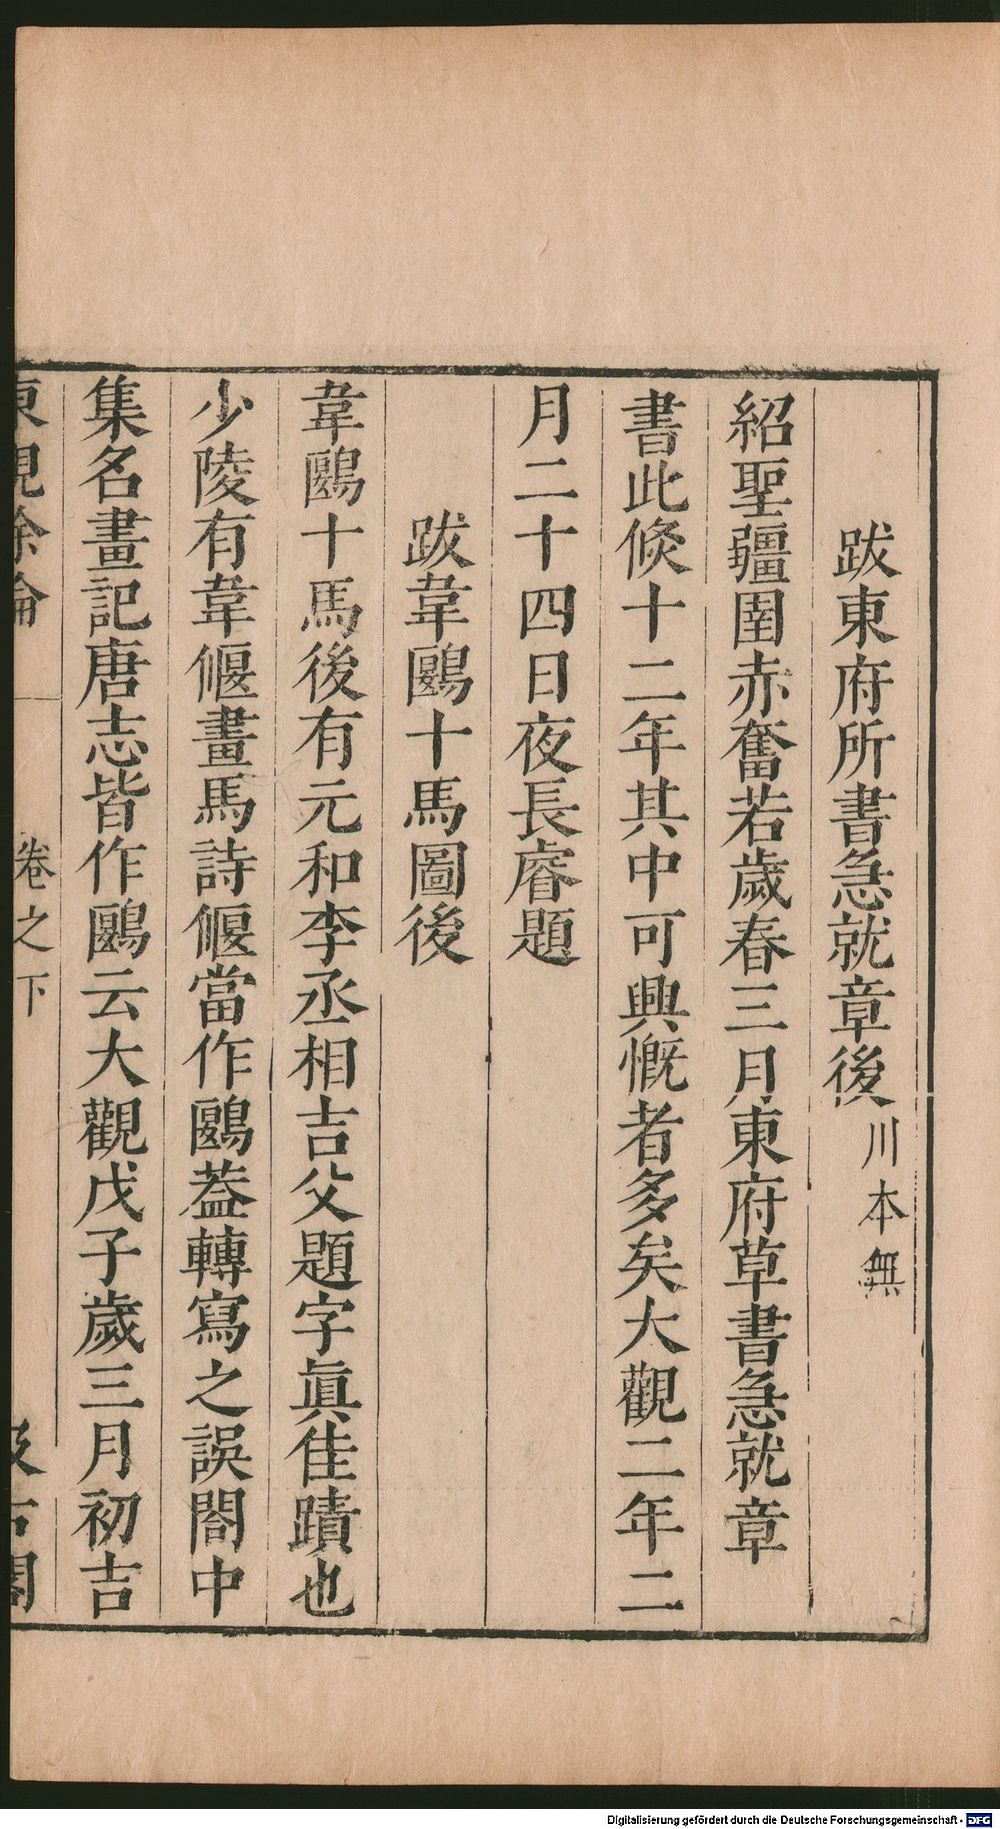 跋東府所書急就章後川本無
紹聖疆圉赤奮若歲春三月東府草書急就章
書此倐十二年其中可興慨者多矣大觀二年二
月二十四日夜長睿題
跋韋鷗十馬圖後
韋鷗十馬後有元和李丞相吉父題字眞佳蹟也
少陵有韋偃畫馬詩偃當作鷗葢轉寫之誤閤中
集名畫記唐志皆作鷗云大觀戊子歲三月初吉
東觀余論 卷之下 汲古閣
Digitalisierung gefördert durch die Deutsche Forschungsgemeinschaft - DFG